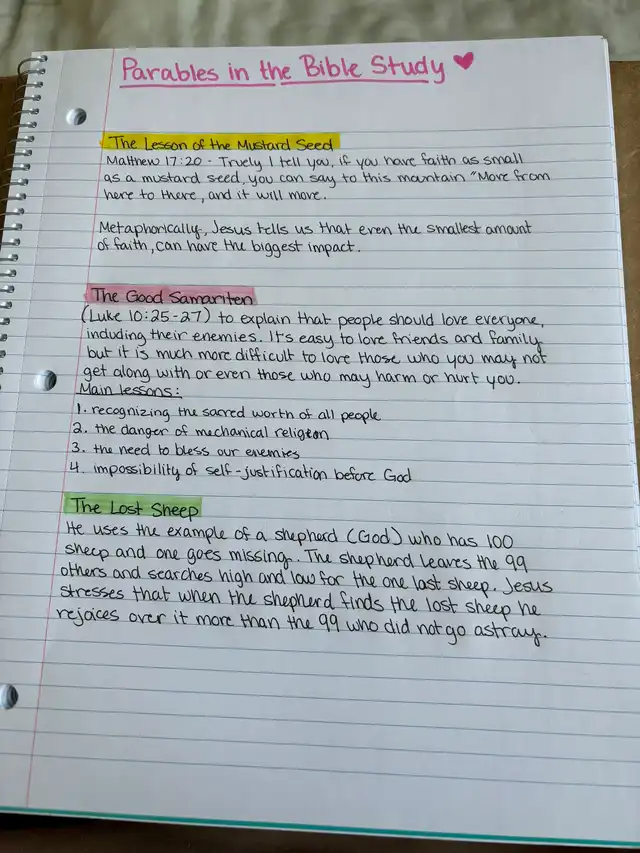 Parables in the Bible Study ♥
The Lesson of the Mustard Seed
Matthew 17:20 - Truely I tell you, if you have faith as small
as a mustard seed, you can say to this mountain "Move from
here to there, and it will move.
Metaphorically, Jesus tells us that even the smallest amount
of faith, can have the biggest impact.
The Good Samariten
(Luke 10:25-27) to explain that people should love everyone,
including their enemies. It's easy to love friends and family
but it is much more difficult to love those who you may not
get along with or even those who may harm or hurt you.
Main lessons:
1. recognizing the sacred worth of all people
2. the danger of mechanical religion
3. the need to bless our enemies
4. impossibility of self-justification before God
The Lost Sheep
He uses the example of a shepherd (God) who has 100
sheep and one goes missing. The shepherd leaves the 99
others and searches high and low for the one lost sheep. Jesus
stresses that when the shepherd finds the lost sheep he
rejoices over it more than the 99 who did not go astray.